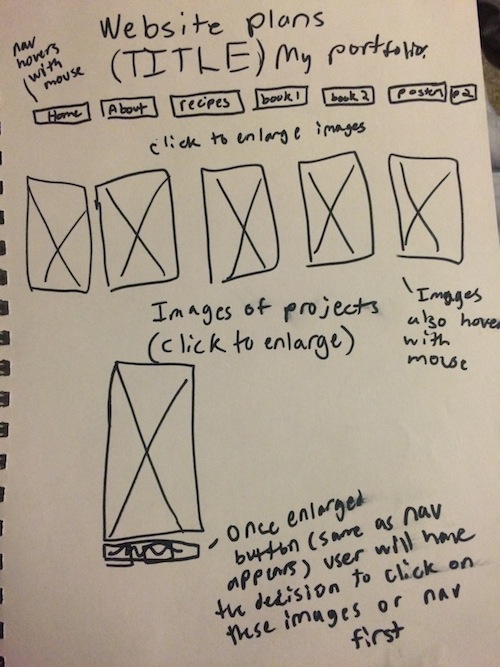 Website plans
(TITLE) My portfolio.
nav
hovers
with
mouse
Home
About
recipes
book 1
book 2
poster
p2
click to enlarge images
Images of projects
(click to enlarge)
Images
also hover
with
mouse
once enlarged
button (same as nav
appears) user will have
the decision to click on
these images or nav
first